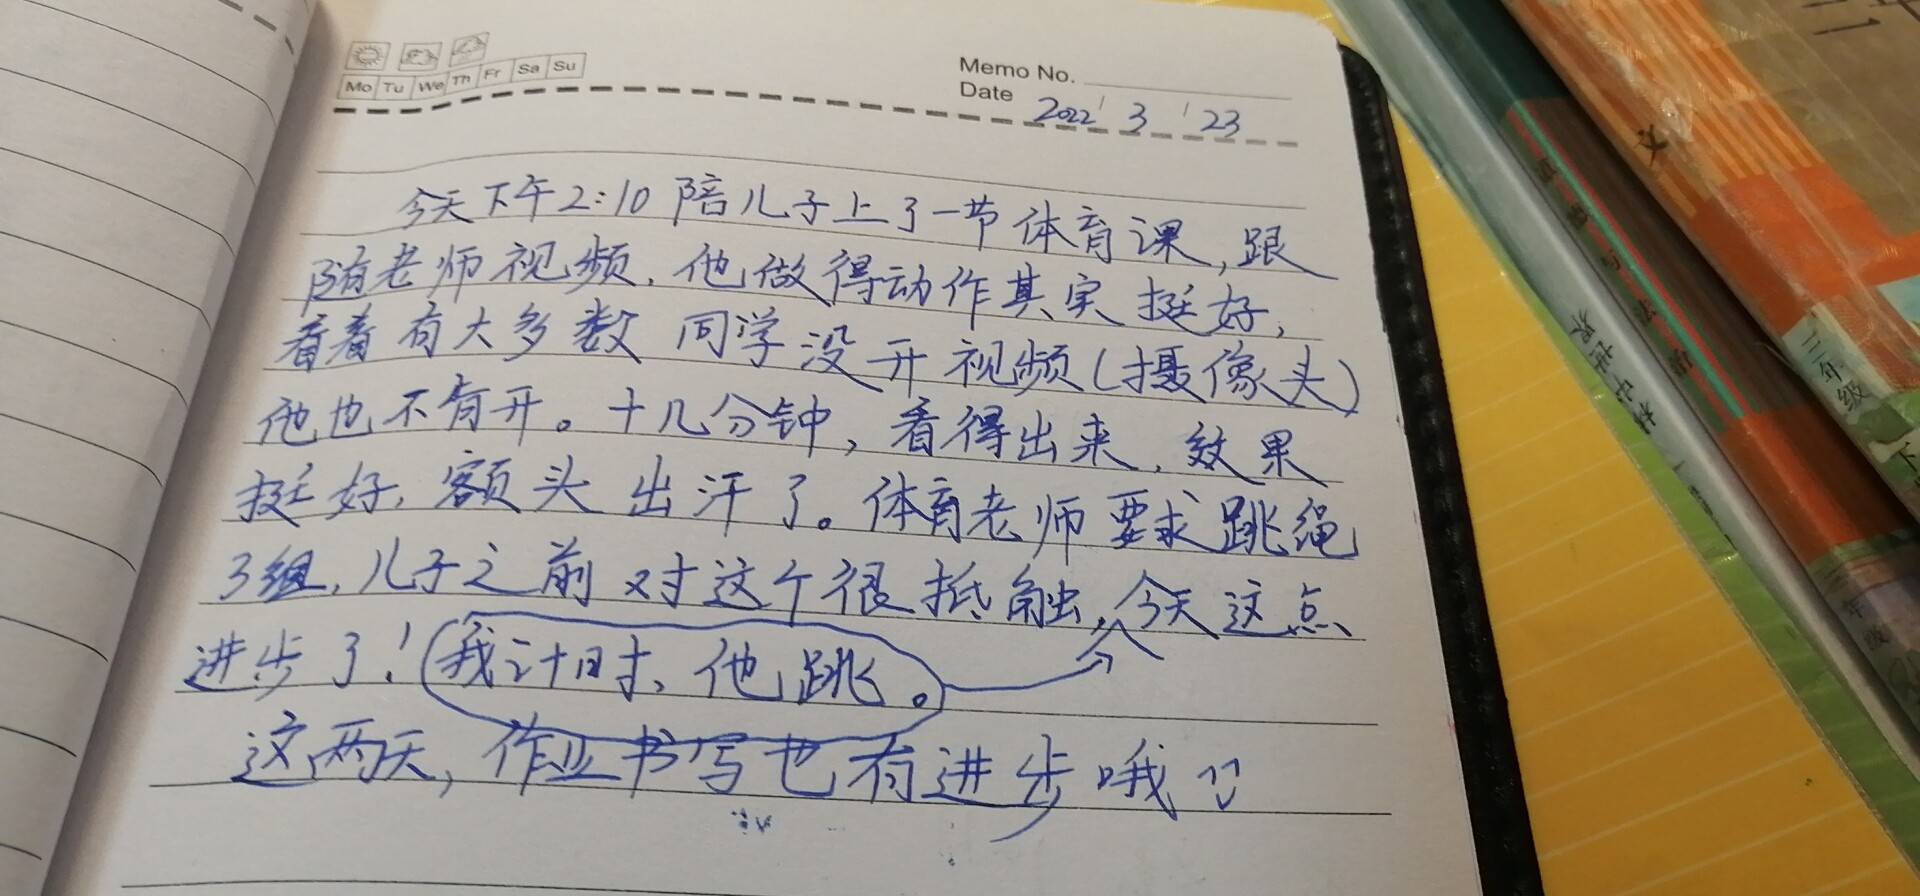 Mo Tu We Th Fr Sa Su
Memo No.
Date 2022 / 3 / 23
今天下午2:10陪儿子上了一节体育课,跟
随老师视频,他做得动作其实挺好,
看着有大多数同学没开视频(摄像头)
他也不肯开。十几分钟,看得出来,效果
挺好,额头出汗了。体育老师要求跳绳
3组,儿子之前对这个很抵触,今天这点
进步了!我计时、他跳。
这两天,作业书写也有进步哦
文
三年级
下